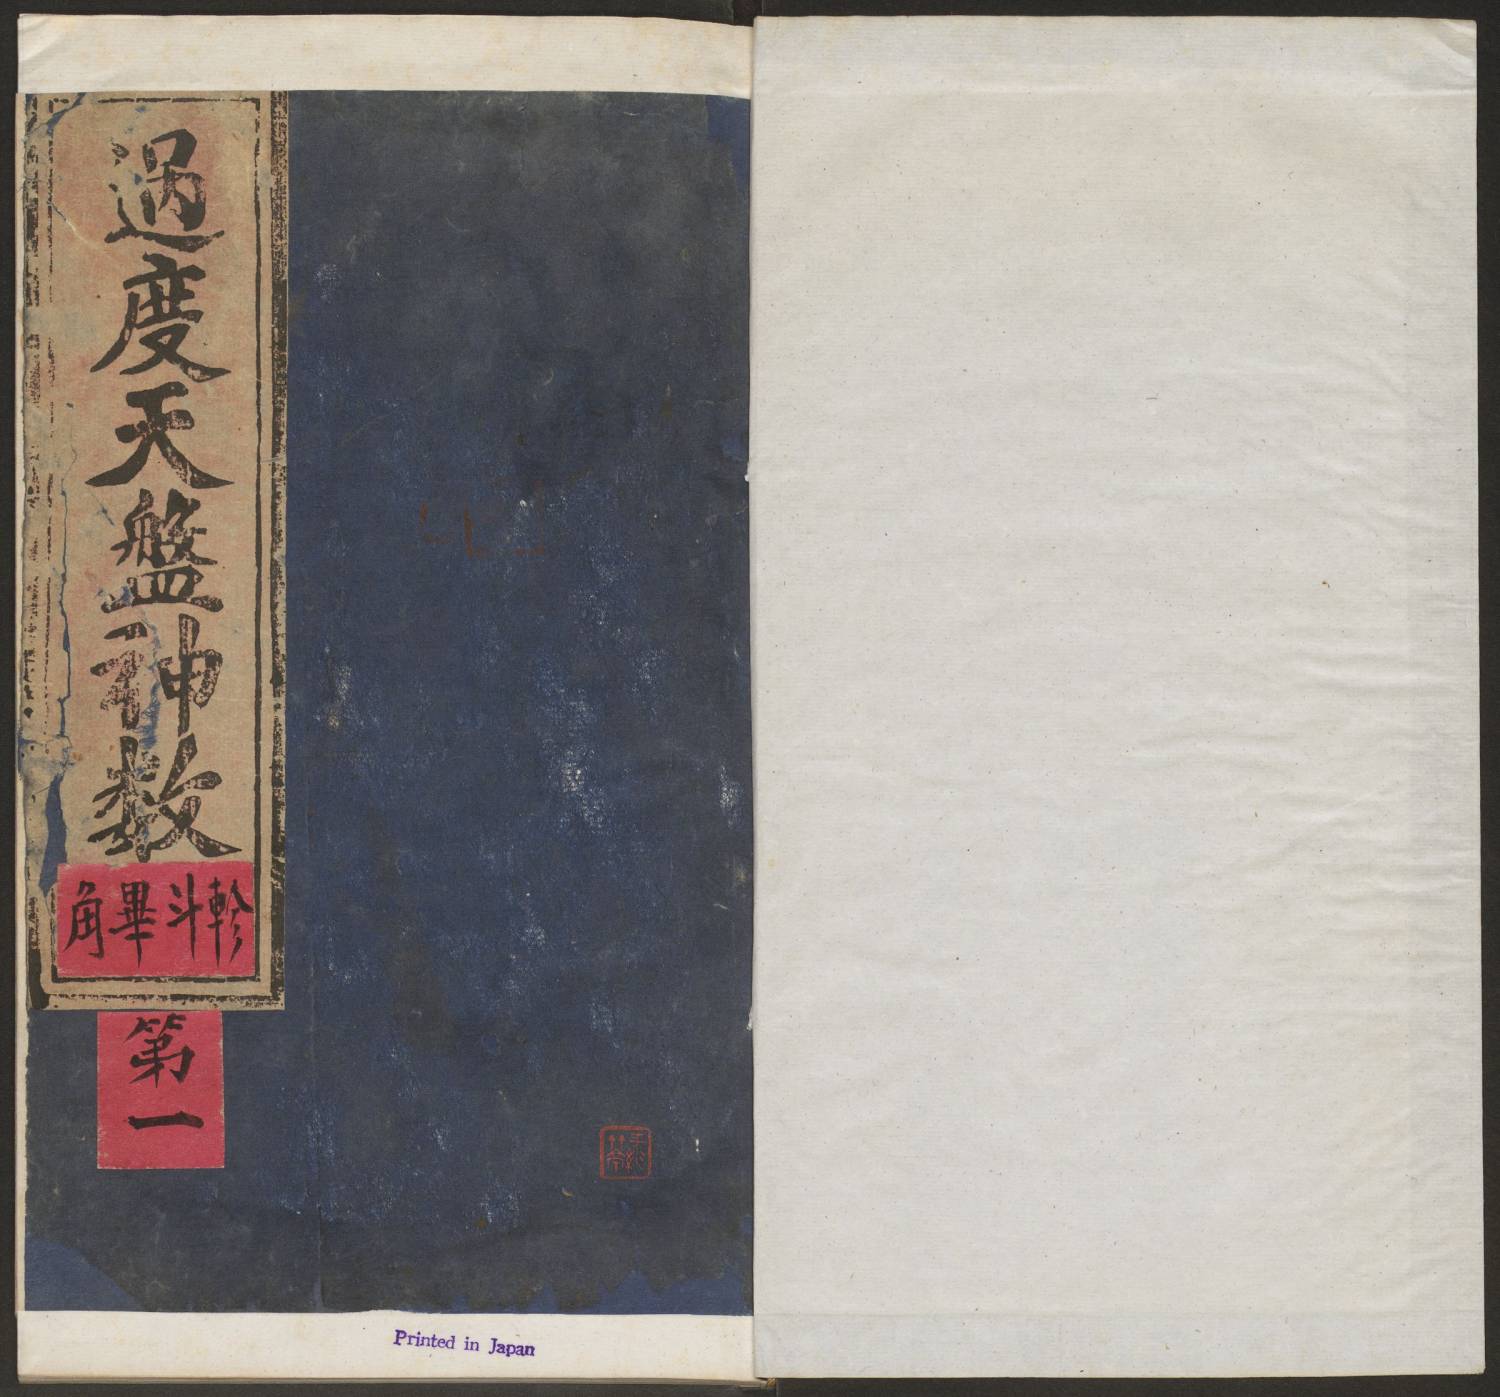 過度天盤神数
軫斗畢角
第一
Printed in Japan